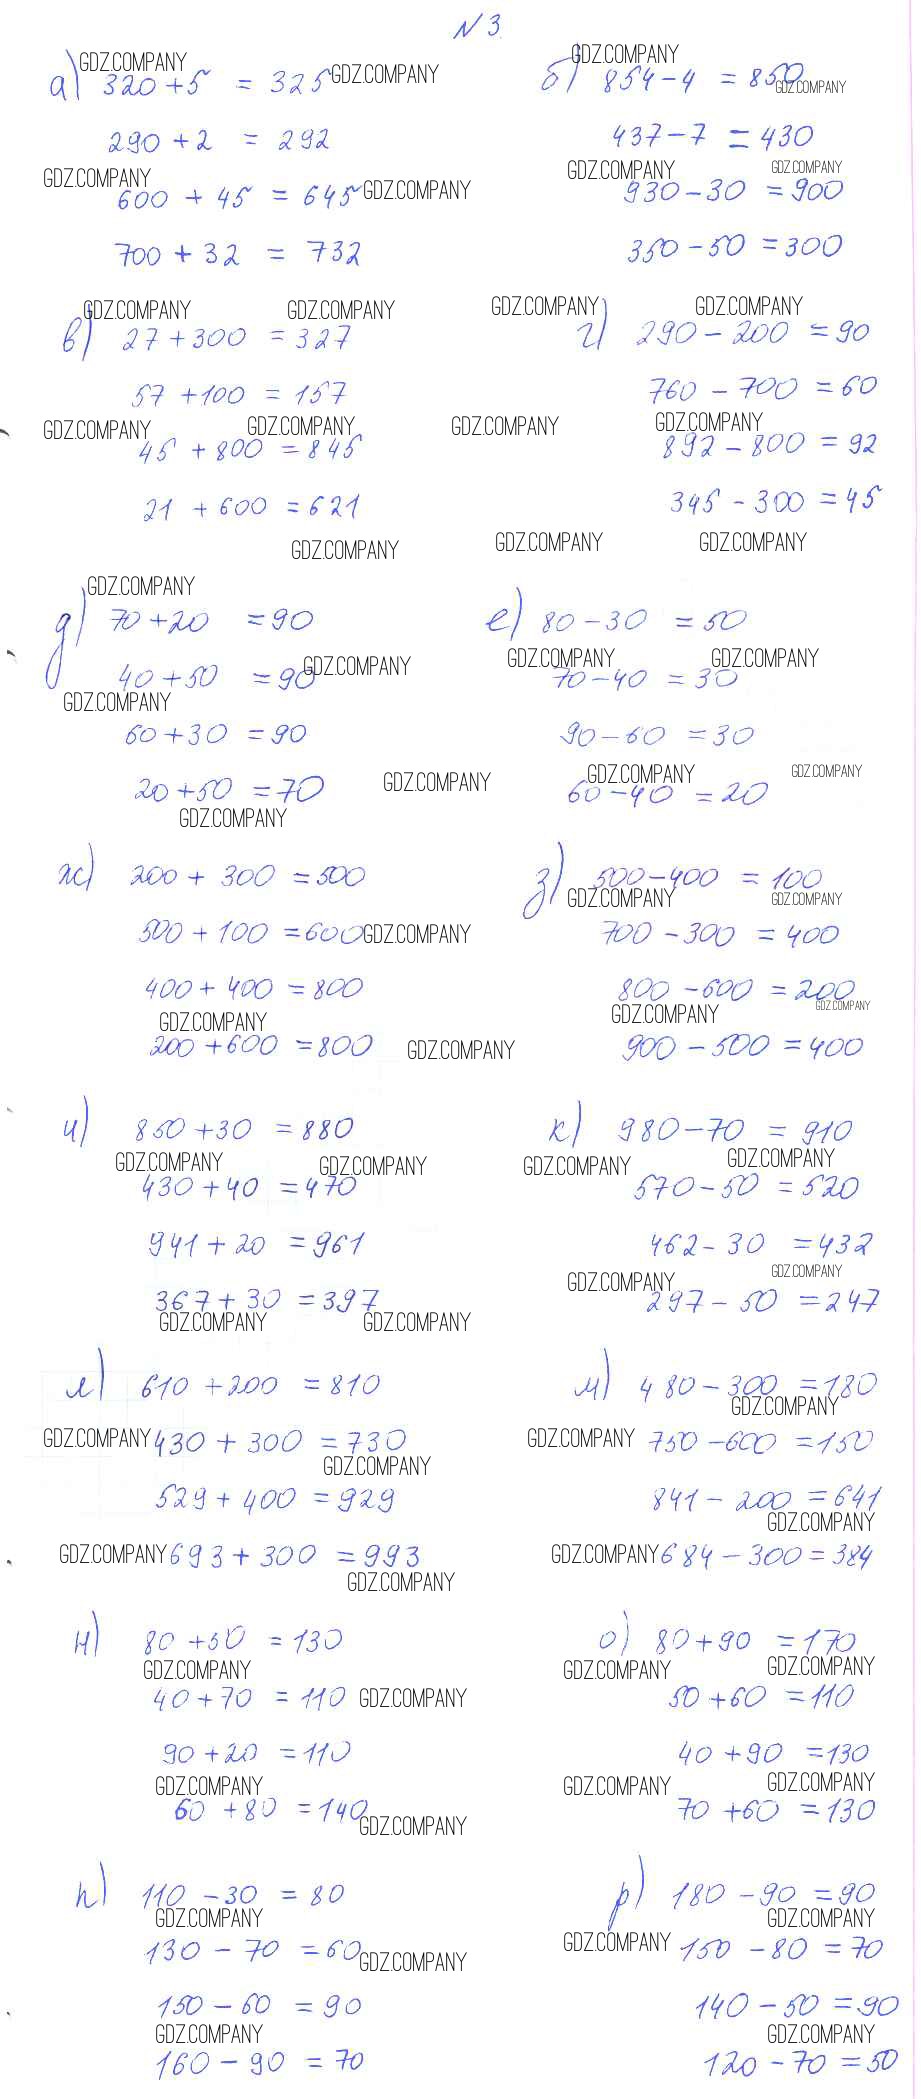 N 3
а) 320 + 5 = 325
290 + 2 = 292
600 + 45 = 645
700 + 32 = 732
б) 854 - 4 = 850
437 - 7 = 430
930 - 30 = 900
350 - 50 = 300
в) 27 + 300 = 327
57 + 100 = 157
45 + 800 = 845
21 + 600 = 621
г) 290 - 200 = 90
760 - 700 = 60
892 - 800 = 92
345 - 300 = 45
д) 70 + 20 = 90
40 + 50 = 90
60 + 30 = 90
20 + 50 = 70
е) 80 - 30 = 50
70 - 40 = 30
90 - 60 = 30
60 - 40 = 20
ж) 200 + 300 = 500
500 + 100 = 600
400 + 400 = 800
200 + 600 = 800
з) 500 - 400 = 100
700 - 300 = 400
800 - 600 = 200
900 - 500 = 400
и) 850 + 30 = 880
430 + 40 = 470
941 + 20 = 961
367 + 30 = 397
к) 980 - 70 = 910
570 - 50 = 520
462 - 30 = 432
297 - 50 = 247
л) 610 + 200 = 810
430 + 300 = 730
529 + 400 = 929
693 + 300 = 993
м) 480 - 300 = 180
750 - 600 = 150
841 - 200 = 641
684 - 300 = 384
н) 80 + 50 = 130
40 + 70 = 110
90 + 20 = 110
60 + 80 = 140
о) 80 + 90 = 170
50 + 60 = 110
40 + 90 = 130
70 + 60 = 130
п) 110 - 30 = 80
130 - 70 = 60
150 - 60 = 90
160 - 90 = 70
р) 180 - 90 = 90
150 - 80 = 70
140 - 50 = 90
120 - 70 = 50
GDZ.COMPANY